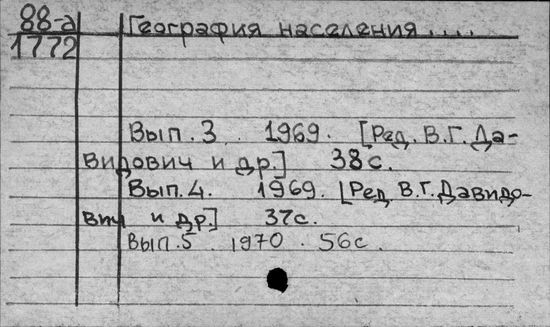 88-а География населения ....
1772
Вып. 3. 1969. [Ред. В.Г. Да-
видович и др.] 38 с.
Вып. 4. 1969. [Ред. В.Г. Давидо-
вич и др.] 37 с.
Вып. 5. 1970. 56 с.